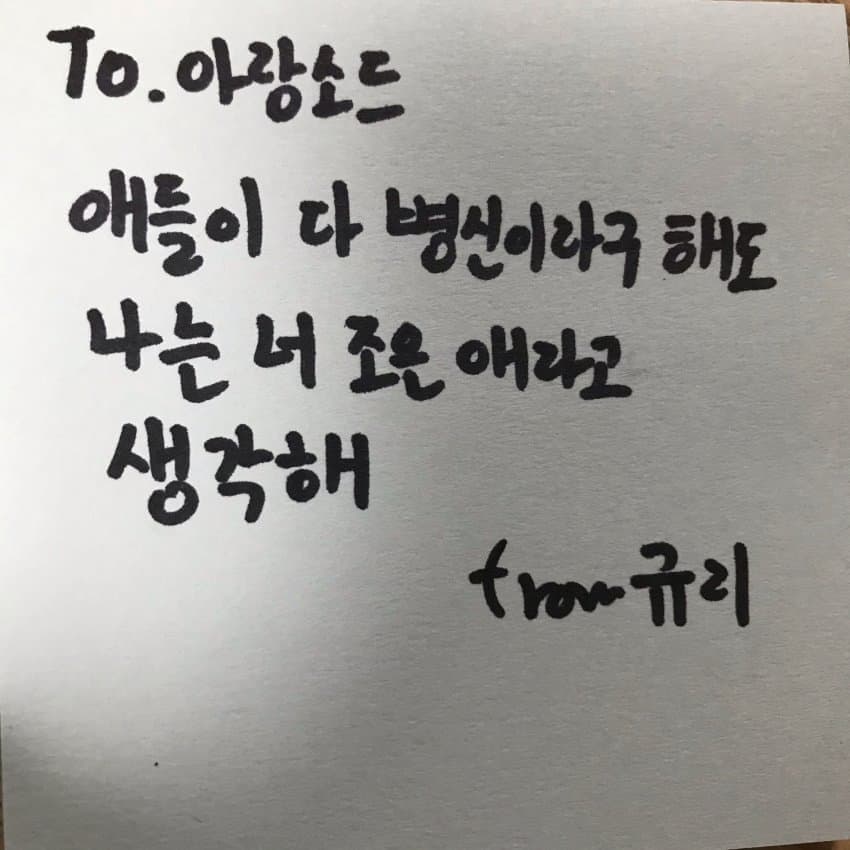 To. 아랑소드
애들이 다 병신이라구 해도
나는 너 조은 애라고
생각해
from 규리